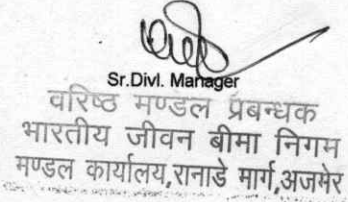 Sr.Divl. Manager
वरिष्ठ मण्डल प्रबन्धक
भारतीय जीवन बीमा निगम
मण्डल कार्यालय,रानाडे मार्ग,अजमेर